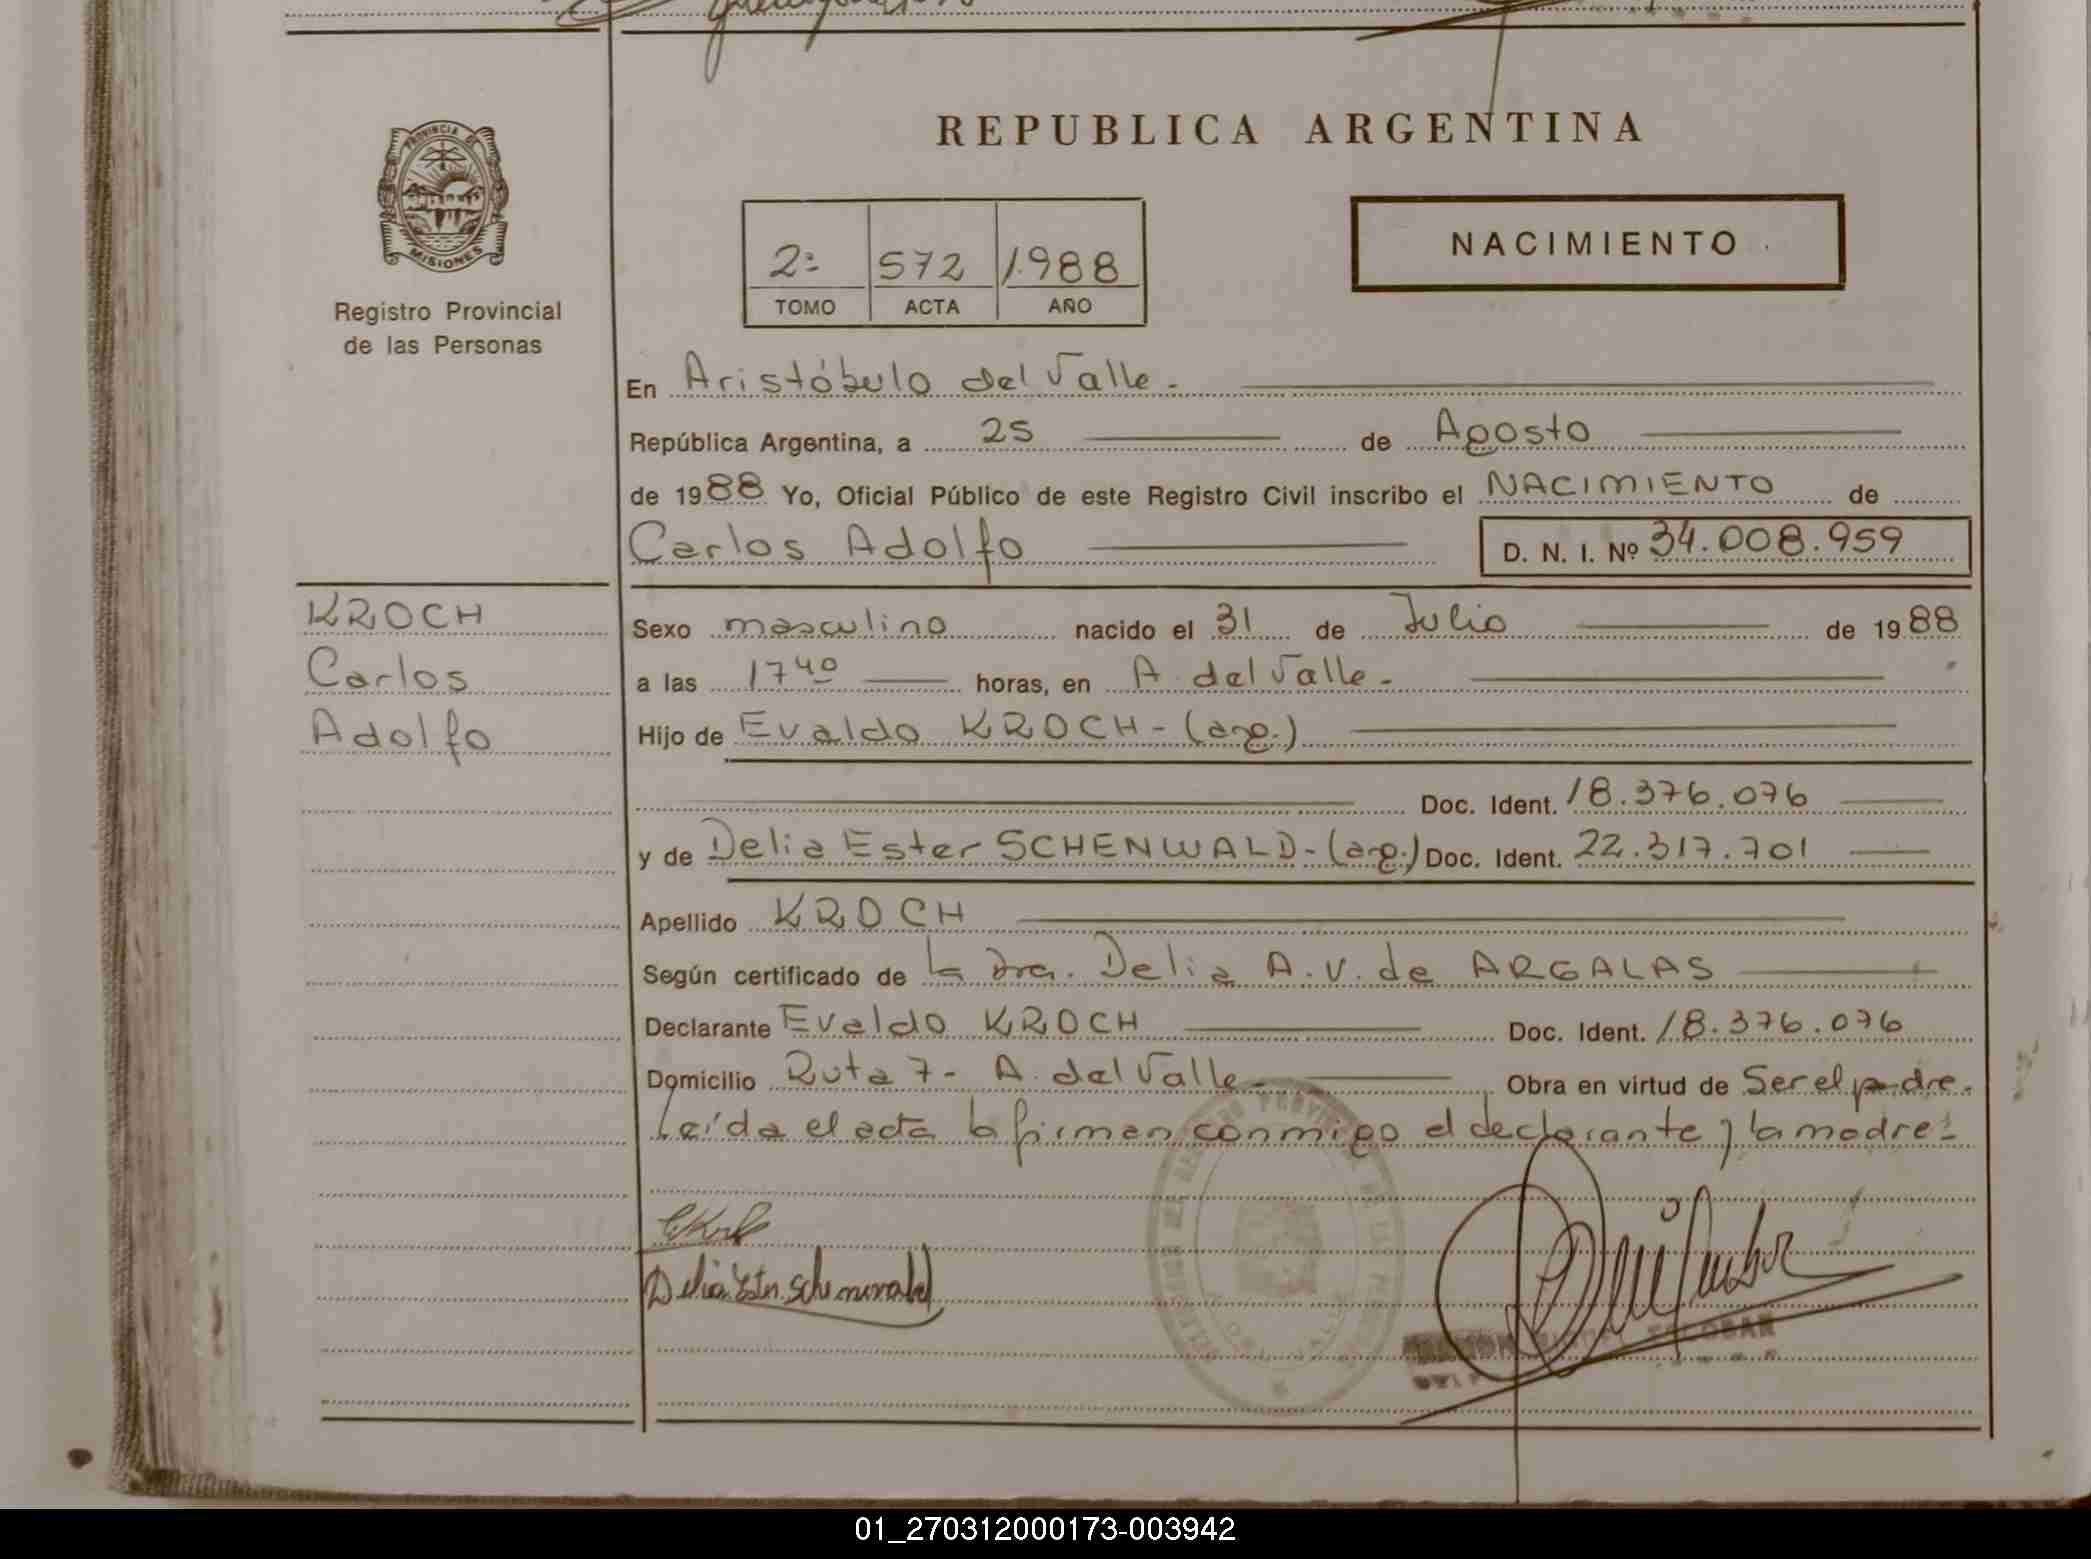 PROVINCIA DE
MISIONES
Registro Provincial
de las Personas
REPUBLICA ARGENTINA
2º 572 1988
TOMO ACTA AÑO
NACIMIENTO
En Aristóbulo del Valle.
República Argentina, a 25 de Agosto
de 1988 Yo, Oficial Público de este Registro Civil inscribo el NACIMIENTO de
Carlos Adolfo D. N. I. Nº 34.008.959
KROCH
Carlos
Adolfo
Sexo masculino nacido el 31 de Julio de 1988
a las 17 40 horas, en A. del Valle.
Hijo de Evaldo KROCH - (arg.)
Doc. Ident. 18.376.076
y de Delia Ester SCHENWALD - (arg.) Doc. Ident. 22.317.701
Apellido KROCH
Según certificado de la Dra. Delia A. V. de ARGALAS
Declarante Evaldo KROCH Doc. Ident. 18.376.076
Domicilio Ruta 7 - A. del Valle - Obra en virtud de Ser el padre.
Leída el acta la firman conmigo el declarante y la madre -
Delia Ester
ESCOBAR
01_270312000173-003942